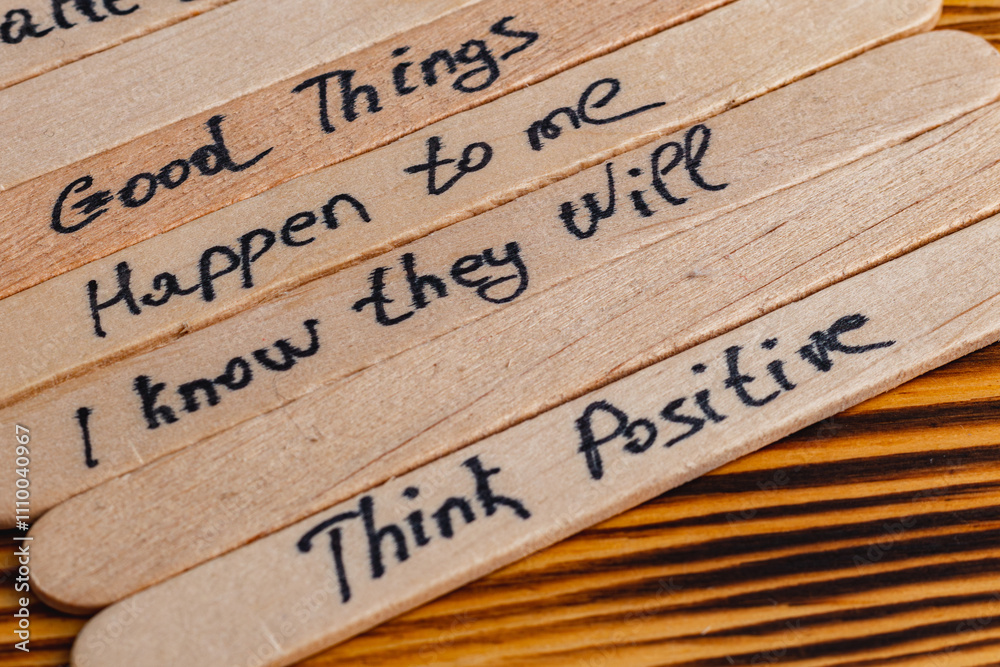 Good Things
Happen to me
I know they will
Think Positive
Adobe Stock | #1110040967